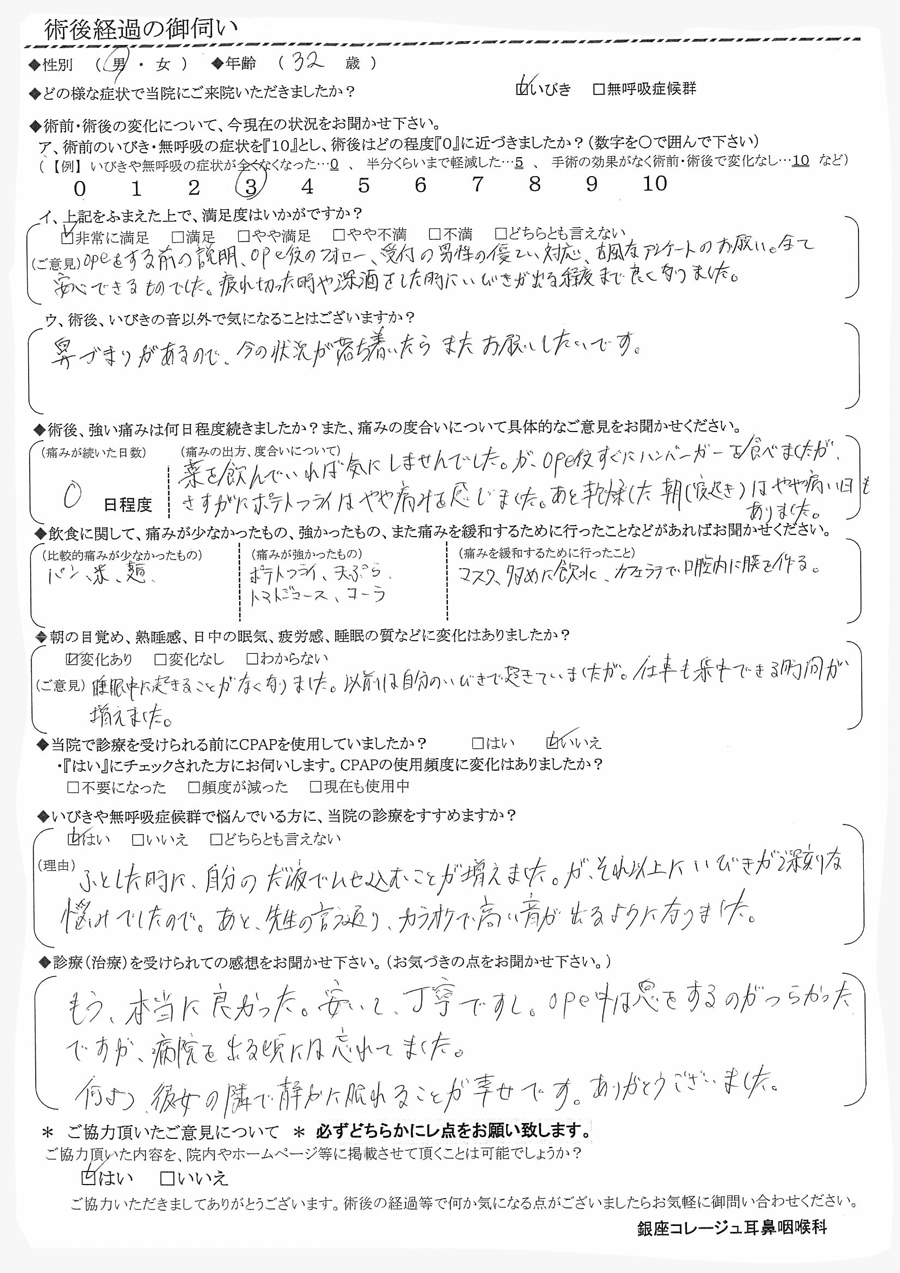 術後経過の御伺い
◆性別 ( 男 ・ 女 ) ◆年齢 ( 32 歳 )
◆どの様な症状で当院にご来院いただきましたか? ☑いびき □無呼吸症候群
◆術前・術後の変化について、今現在の状況をお聞かせ下さい。
ア、術前のいびき・無呼吸の症状を『10』とし、術後はどの程度『0』に近づきましたか?(数字を○で囲んで下さい)
(【例】 いびきや無呼吸の症状が全くなくなった…0 、 半分くらいまで軽減した…5 、 手術の効果がなく術前・術後で変化なし…10 など)
0 1 2 3 4 5 6 7 8 9 10
イ、上記をふまえた上で、満足度はいかがですか?
☑非常に満足 □満足 □やや満足 □やや不満 □不満 □どちらとも言えない
(ご意見) opeをする前の説明、ope後のフォロー、受付の男性の優しい対応、古風なアンケートのお願い。全て
安心できるものでした。疲れ切った時や深酒をした時にいびきが出る程度まで良くなりました。
ウ、術後、いびきの音以外で気になることはございますか?
鼻づまりがあるので、今の状況が落ち着いたら またお願いしたいです。
◆術後、強い痛みは何日程度続きましたか?また、痛みの度合いについて具体的なご意見をお聞かせください。
(痛みが続いた日数) (痛みの出方、度合いについて)
薬を飲んでいれば気にしませんでした。が、ope後すぐにハンバーガーを食べましたが、
0 日程度 さすがにポテトフライはやや痛みを感じました。あと乾燥した朝(寝起き)はやや痛い日も
ありました。
◆飲食に関して、痛みが少なかったもの、強かったもの、また痛みを緩和するために行ったことなどがあればお聞かせください。
(比較的痛みが少なかったもの) (痛みが強かったもの) (痛みを緩和するために行ったこと)
パン、米、麺、 ポテトフライ、天ぷら、 マスク、多めに飲水、カフェラテで口腔内に膜を作る。
トマトジュース、コーラ
◆朝の目覚め、熟睡感、日中の眠気、疲労感、睡眠の質などに変化はありましたか?
☑変化あり □変化なし □わからない
(ご意見) 睡眠中に起きることがなくなりました。以前は自分のいびきで起きていましたが。仕事も集中できる時間が
増えました。
◆当院で診療を受けられる前にCPAPを使用していましたか? □はい ☑いいえ
・『はい』にチェックされた方にお伺いします。CPAPの使用頻度に変化はありましたか?
□不要になった □頻度が減った □現在も使用中
◆いびきや無呼吸症候群で悩んでいる方に、当院の診療をすすめますか?
☑はい □いいえ □どちらとも言えない
(理由) ふとした時に、自分の だ液でムセ込むことが増えました。が、それ以上にいびきが深刻な
悩みでしたので。あと、先生の言う通り、カラオケで高い音が出るようになりました。
◆診療(治療)を受けられての感想をお聞かせ下さい。(お気づきの点をお聞かせ下さい。)
もう、本当に良かった。安いし、丁寧ですし。ope中は息をするのがつらかった
ですが、病院を出る頃には忘れてました。
何よりも、彼女の隣で静かに眠れることが幸せです。ありがとうございました。
＊ ご協力頂いたご意見について ＊ 必ずどちらかにレ点をお願い致します。
ご協力頂いた内容を、院内やホームページ等に掲載させて頂くことは可能でしょうか?
☑はい □いいえ
ご協力いただきましてありがとうございます。術後の経過等で何か気になる点がございましたらお気軽に御問い合わせください。
銀座コレージュ耳鼻咽喉科